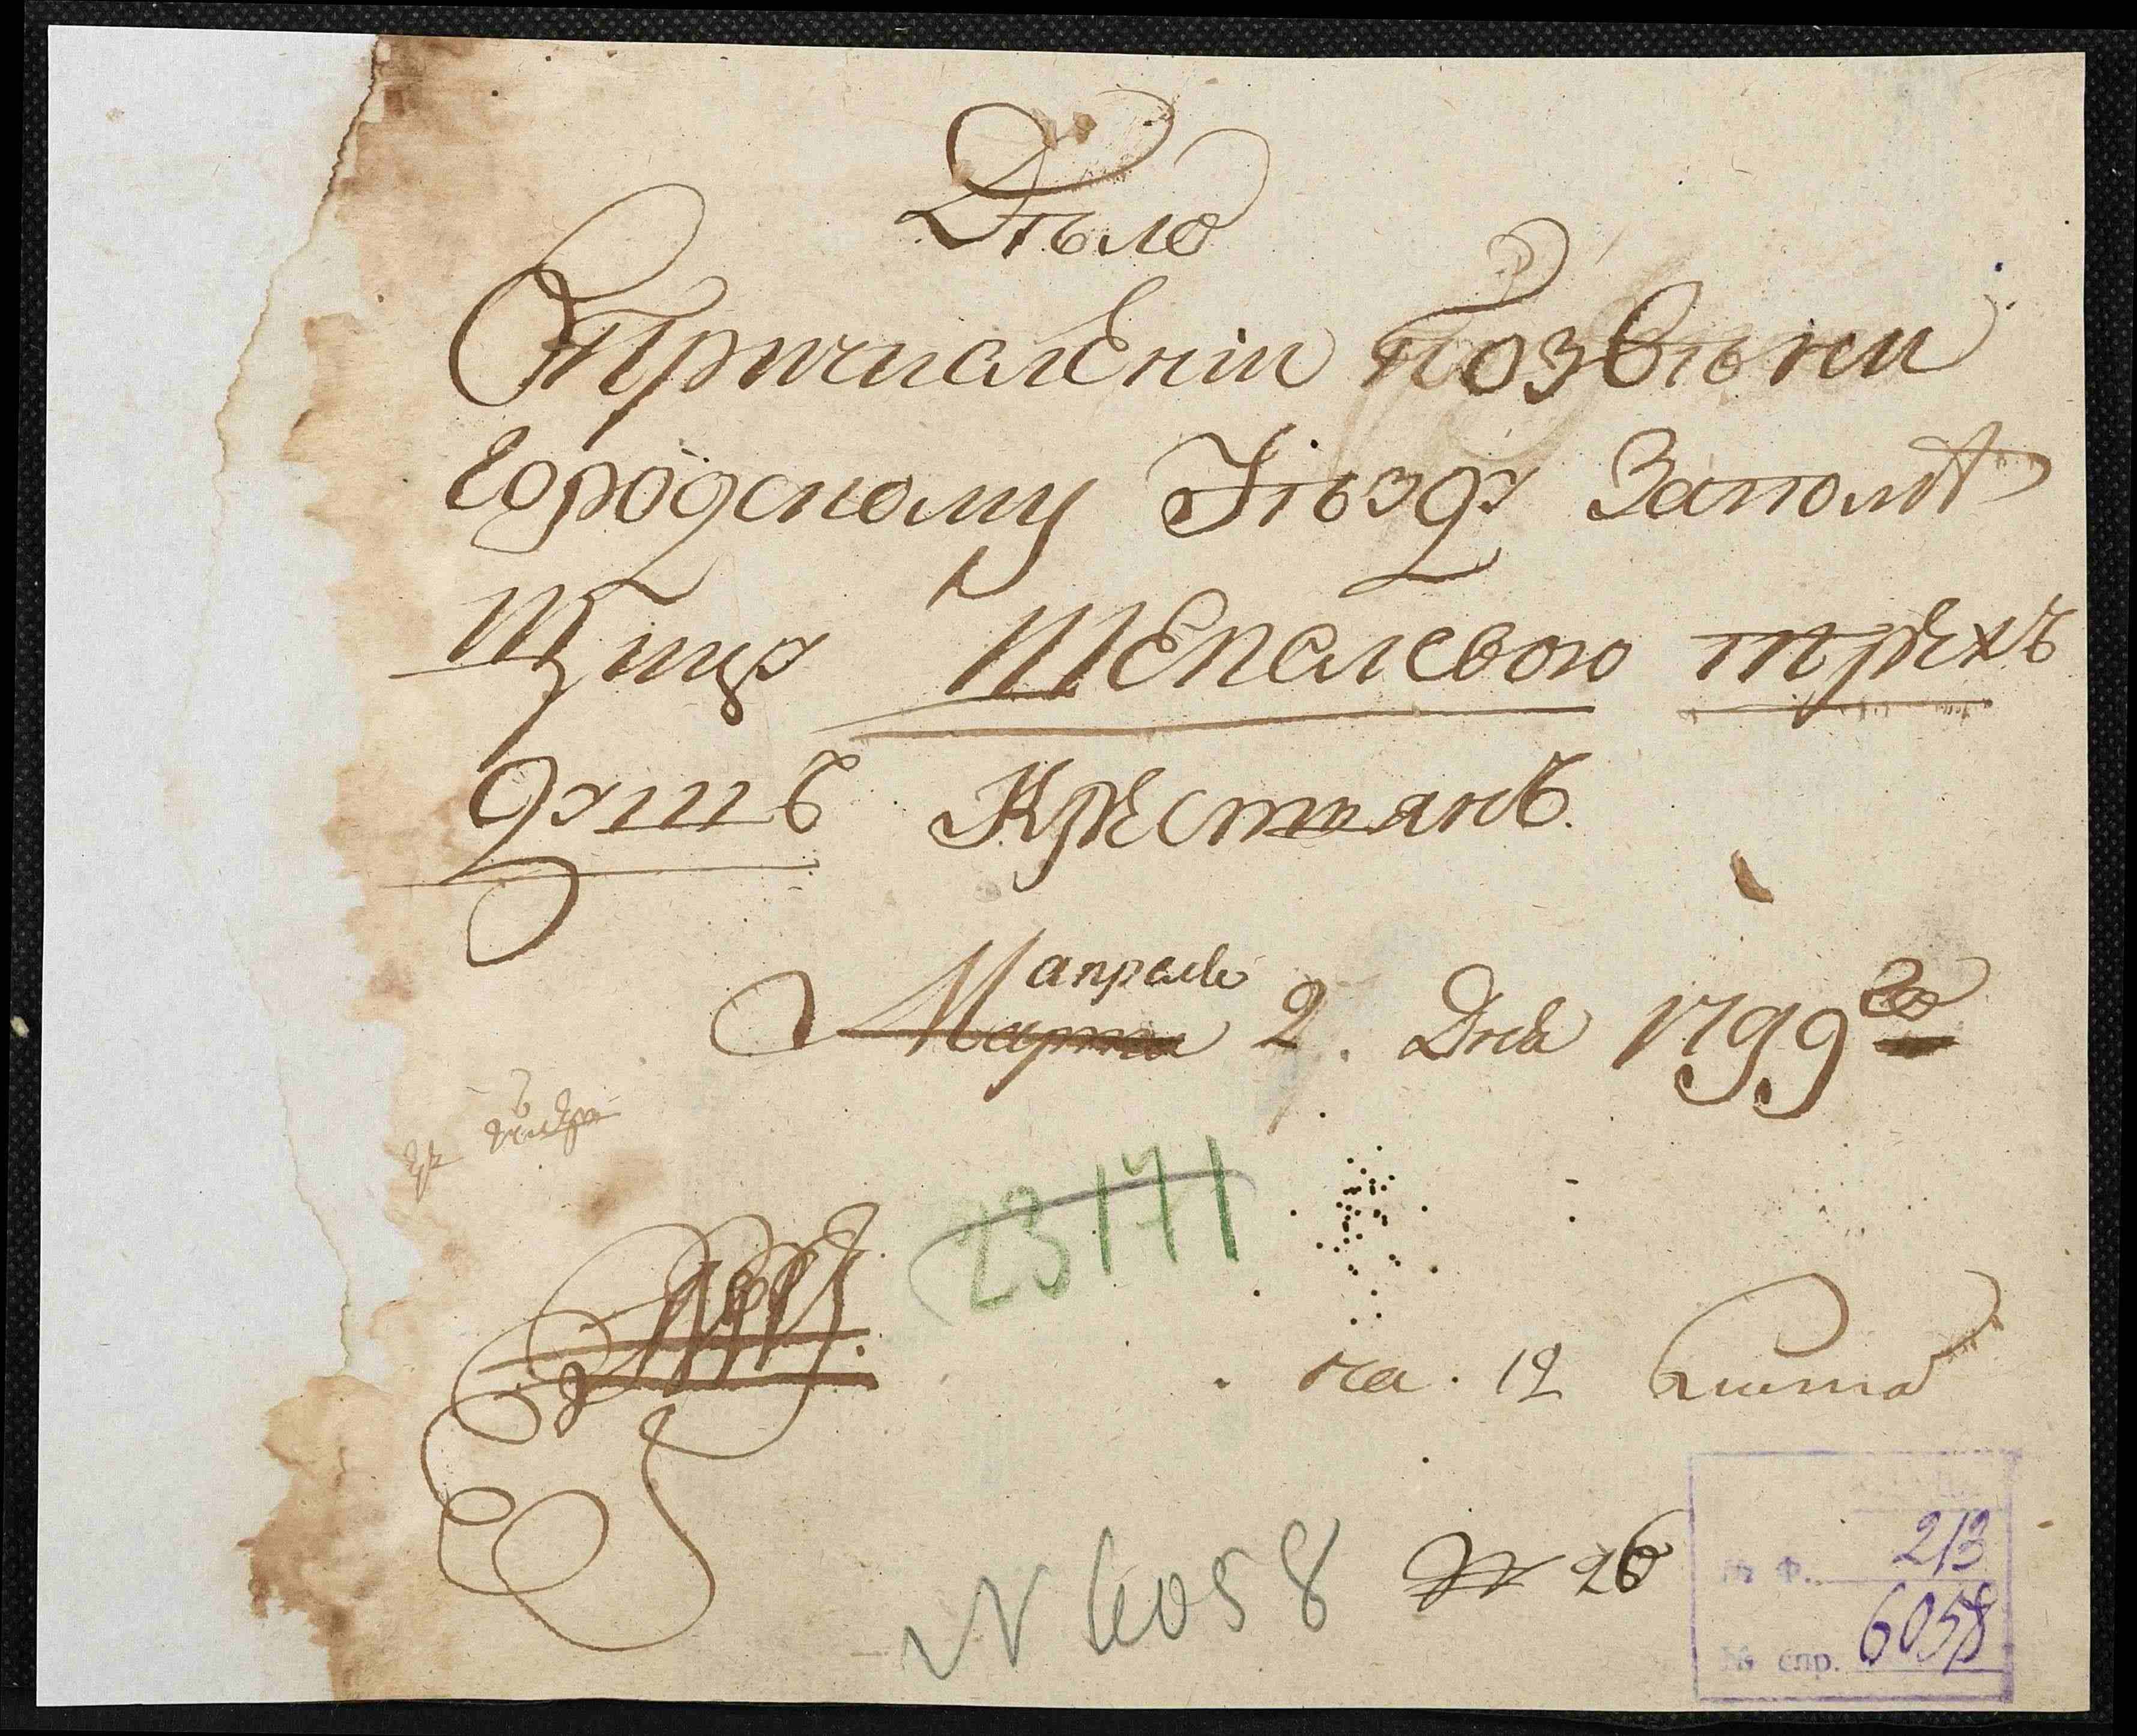 Дѣло
Опричисленіи позвѣни
городскому Уѣзду Запомѣ
Щицу Шепелевою трехъ
душъ Крестьянъ.
апреля
Марта 2. Дня 1799го
23171
на. 12 листа
N 6058 № 26
№ ф. 213
№ спр. 6058